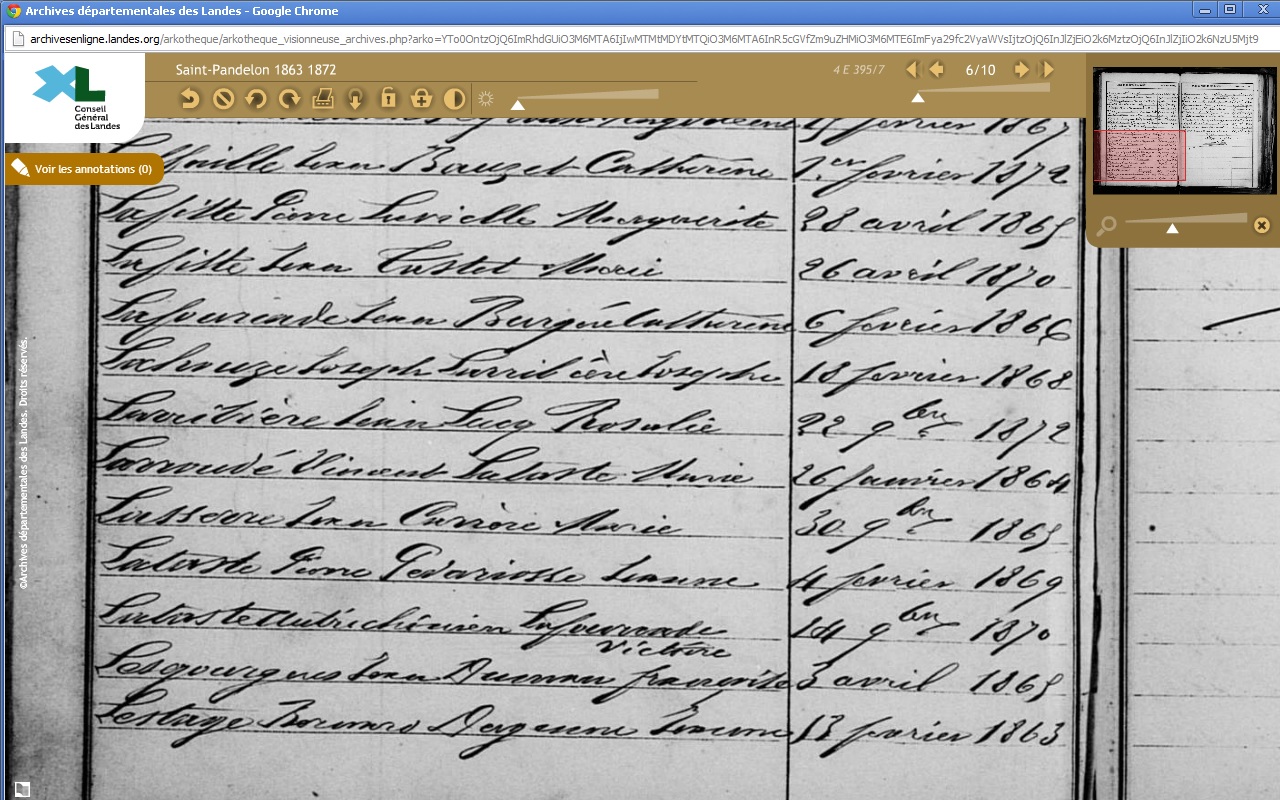 Archives départementales des Landes - Google Chrome
archivesenligne.landes.org/arkotheque/arkotheque_visionneuse_archives.php?arko=
Saint-Pandelon 1863 1872
4 E 395/7
6/10
XL
Conseil
Général
des Landes
Voir les annotations (0)
février 1867
Jean Bauzet Catherine 1er février 1872
Lafitte Pierre Lavielle Marguerite 28 avril 1865
Lafitte Jean Castet Marie 26 avril 1870
Lafourcade Jean Burgué Catherine 6 février 1866
Lahouze Joseph Larribère Josephe 18 février 1868
Jean Lucq Rosalie 22 9bre 1872
Larroudé Vincent Lataste Marie 26 janvier 1864
Lasserre Jean Carrère Marie 30 9bre 1865
Lataste Pierre Gedariosse Jeanne 4 février 1869
Lataste Lafourcade 14 9bre 1870
Victoire
Lesgourgues Jean françoise 3 avril 1865
Lestage Bernard 13 février 1863
©Archives départementales des Landes. Droits réservés.